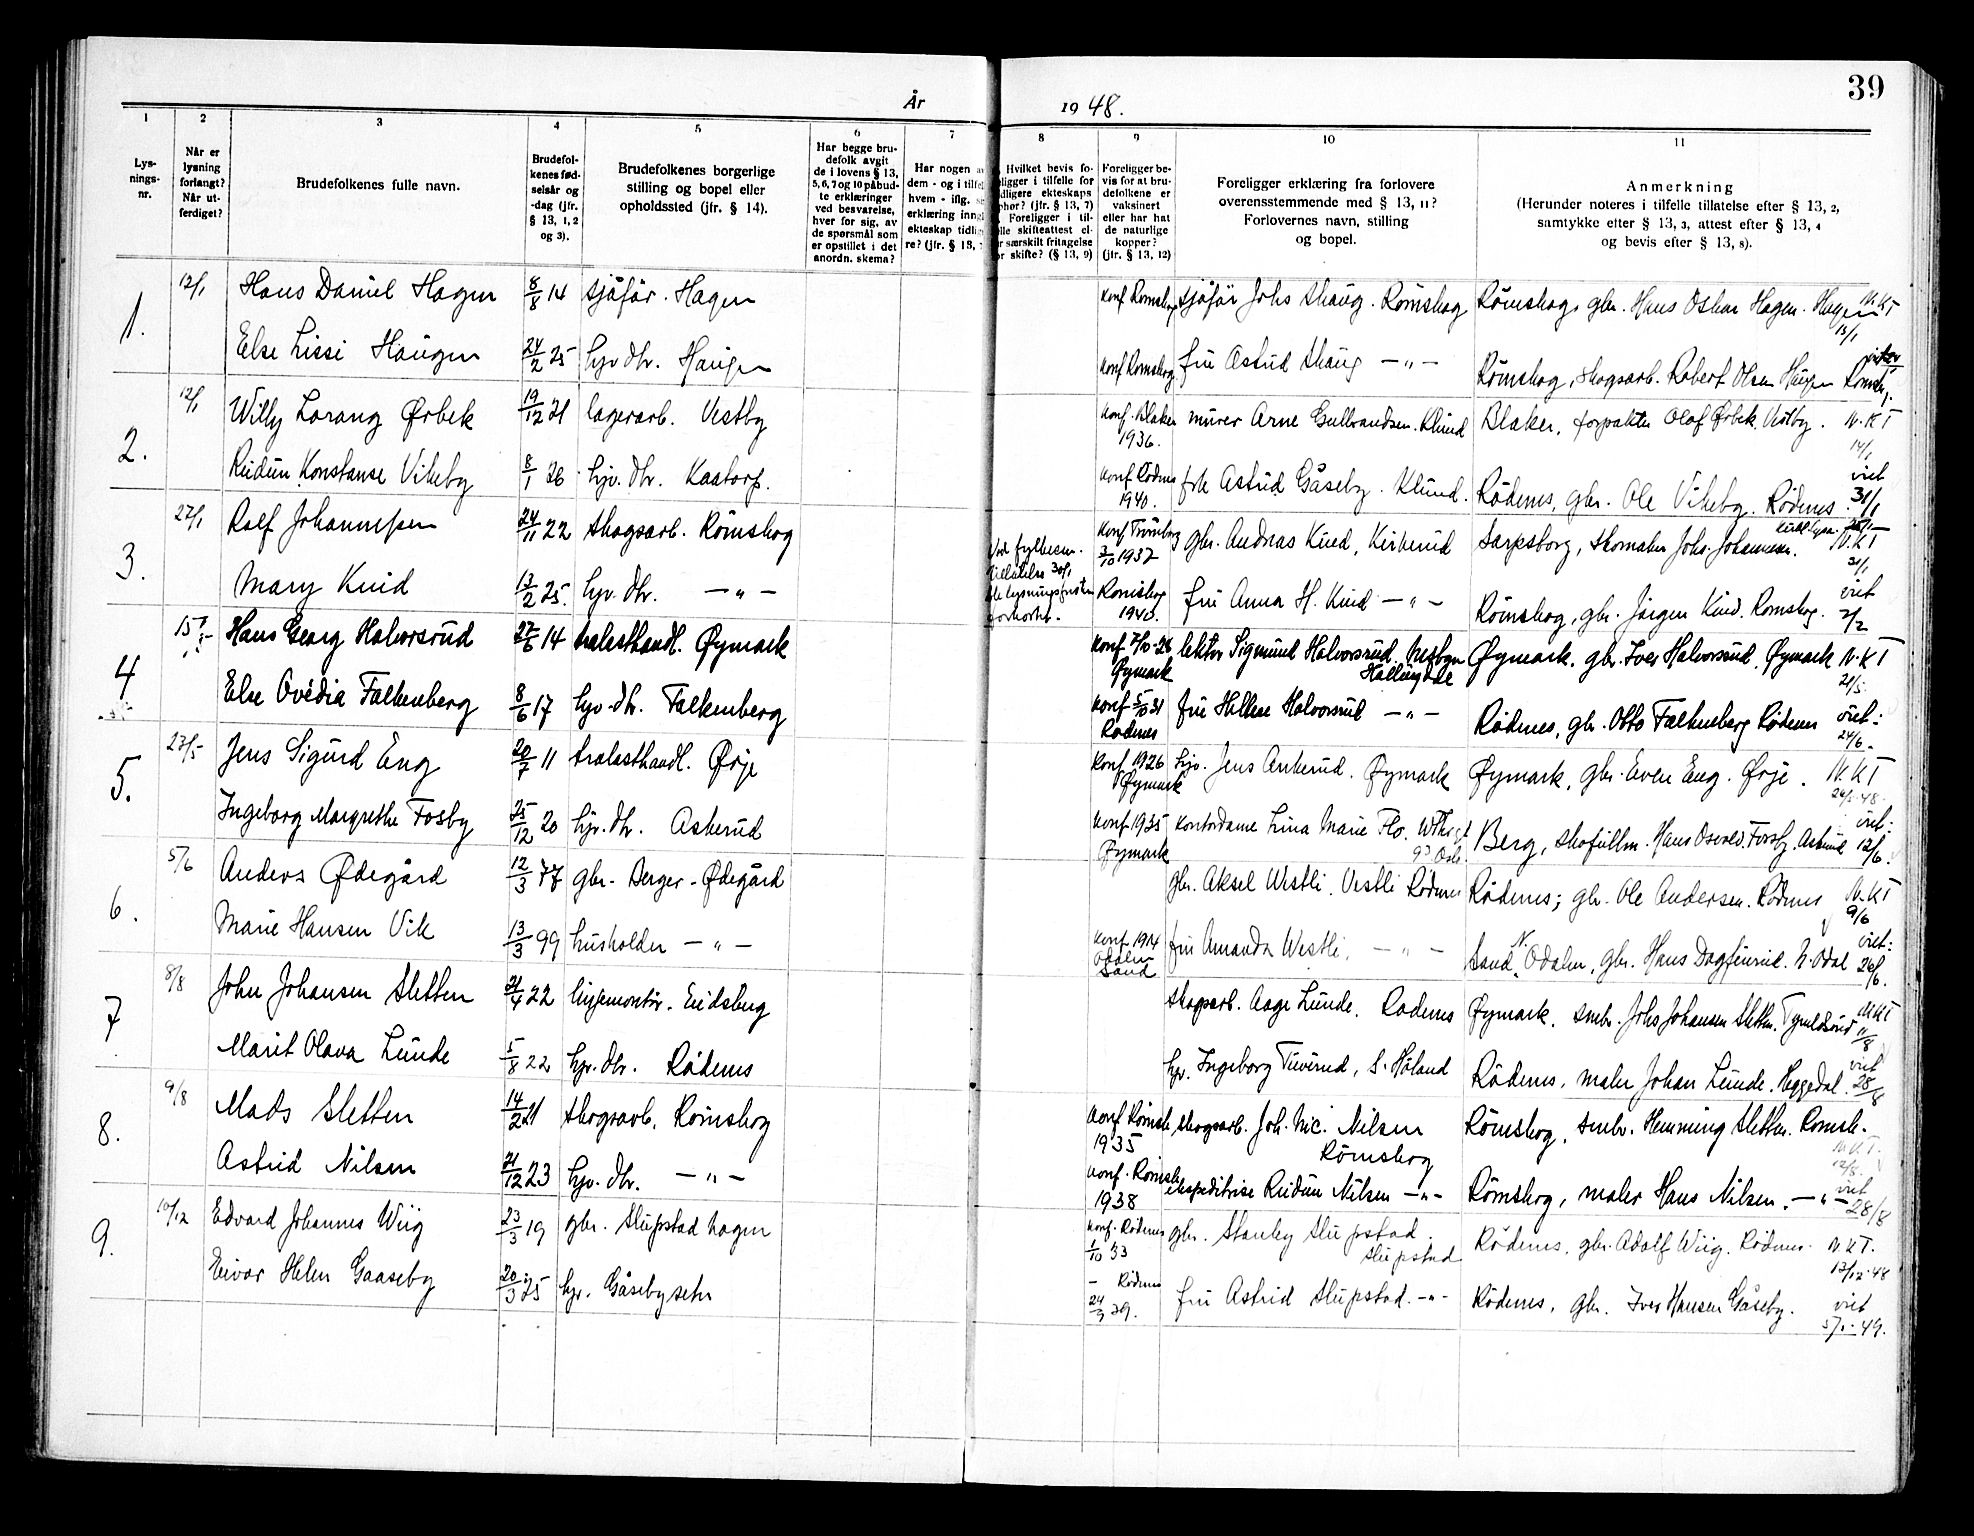 39
År 1948.
1 2 3 4 5 6 7 8 9 10 11
Lys-
nings-
nr.
Når er
lysning
forlangt?
Når ut-
ferdiget?
Brudefolkenes fulle navn.
Brudefol-
kenes fød-
selsår og
-dag (jfr.
§ 13, 1, 2
og 3).
Brudefolkenes borgerlige
stilling og bopel eller
opholdssted (jfr. § 14).
Har begge bru-
defolk avgit
de i lovens § 13,
5, 6, 7 og 10 påbud-
te erklæringer
ved besvarelse,
hver for sig, av
de spørsmål som
er opstillet i det
anordn. skema?
Har nogen
dem - og i
hvem - iflg.
erklæring
ekteskap
re? (jfr. § 13,
Hvilket bevis fo-
ligger i tilfelle for
ekteskaps
(jfr. § 13, 7)
Foreligger i til-
skifteattest el-
særskilt fritagelse
skifte? (§ 13, 9)
Foreligger be-
vis for at bru-
defolkene er
vaksinert
eller har hat
de naturlige
kopper?
(jfr. § 13, 12)
Foreligger erklæring fra forlovere
overensstemmende med § 13, 11?
Forlovernes navn, stilling
og bopel.
Anmerkning
(Herunder noteres i tilfelle tillatelse efter § 13, 2,
samtykke etter § 13, 3, attest efter § 13, 4
og bevis efter § 13, 8).
1. 12/1 Hans Daniel Hagen 8/8 14 sjåfør. Hagen konf Romskog sjåfør Johs Skaug. Rømskog Rømskog, gbr. Hans Oskar Hagen. Hagen N.KT 13/1
Else Lissi Haugen 24/2 25 hjv. dtr. Haugen konf Romskog fru Astrid Skaug — " — Rømskog, skogsarb. Robert Olsen Haugen Romsk.
2. 12/1 Willy Lorang Ørbek 19/12 21 lagerarb. Vestby konf. Blaker 1936. murer Arne Gulbrandsen. Klund Blaker, forpakter Olaf Ørbek. Vestby. N.KT 14/1
Reidun Konstanse Vikeby 8/1 26 hjv. dtr. Kaatorp. konf Rødenes 1940. frk Astrid Gåseby. Klund. Rødenes, gbr. Ole Vikeby. Rødenes. viet 31/1
3. 27/1 Rolf Johannessen 24/11 22 skogsarb. Rømskog konf Trømborg 3/10 1937 gbr. Andreas Kind, Kirkerud Sarpsborg, skomaker Johs. Johannesen. N.KT 31/1
Ved fylkesm.
tillatelse 30/1
ble lysningsfristen
forkortet.
Mary Kind 13/2 25. hjv. dtr. — " — Romskog 1940. fru Anna H. Kind — " — Rømskog, gbr. Jørgen Kind. Romskog. viet 7/2
4 Hans Georg Halvorsrud 27/6 14 trelasthandl. Øymark konf 7/10-28 Øymark lektor Sigmund Halvorsrud. Nesbyen Hallingdal Øymark, gbr. Iver Halvorsrud, Øymark N.KT 21/5.
Else Ovedia Falkenberg 8/6 17 hjv. dtr. Falkenberg konf 5/10 31 Rødenes fru Hellene Halvorsrud — " — Rødenes, gbr. Otto Falkenberg Rødenes viet: 24/6.
5. 27/5 Jens Sigurd Eng 20/7 11 trelasthandl. Ørje konf 1926 Øymark hjv. Jens Ankerud. Øymark Øymark, gbr. Even Eng. Ørje. N.KT
Ingeborg Margrethe Fosby 25/12 20 hjv. dtr. Askerud konf 1935 Øymark kontordame Lina Marie Flo. Berg, skofullm. Hans Osvald Fosby. Askerud viet: 12/6.
6. 5/6 Anders Ødegård 12/3 77 gbr. Berger - Ødegård gbr. Aksel Westli. Vestli Rødenes Rødenes; gbr. Ole Andersen. Rødenes N.KT 9/6
Marie Hansen Vik 13/3 99 husholder — " — konf 1914 Odalen Sand fru Amanda Westli, — " — Sand, N. Odalen, gbr. Hans Dagfinrud. N. Odal viet: 26/6.
7 8/8 John Johansen Sletten 21/4 22 linjemontør. Eidsberg skogsarb. Aage Lunde. Rødenes Øymark. smbr. Johs Johansen Sletten. N.KT 11/8
Marit Olava Lunde 5/8 22 hjv. dtr. Rødenes hjv. Ingeborg Tuverud, S. Høland Rødenes, maler Johan Lunde. Heggedal. viet 28/8
8. 9/8 Mads Sletten 14/2 21 skogsarb. Rømskog konf Rømsk 1935 skogsarb. Joh. Nic. Nilsen Rømskog Rømskog, smbr. Hemming Sletten. Romsk. N.KT.
Astrid Nilsen 21/12 23 hjv. dtr. — " — konf. Romsk 1938 ekspeditrise Reidun Nilsen — " — Rømskog, maler Hans Nilsen. — " — viet 28/8
9. 10/12 Edvard Johannes Wiig 23/3 19 gbr. Slupstad hagen konf. Rødenes 1/10 33 gbr. Stanley Slupstad. Slupstad Rødenes, gbr. Adolf Wiig. Rødenes. N.KT. 12/12-48
Eivor Helen Gaaseby 20/3 25 hjv. Gåsebyseter — Rødenes 24/9 39. fru Astrid Slupstad. — " — Rødenes, gbr. Iver Hansen Gåseby. viet 5/1-49.